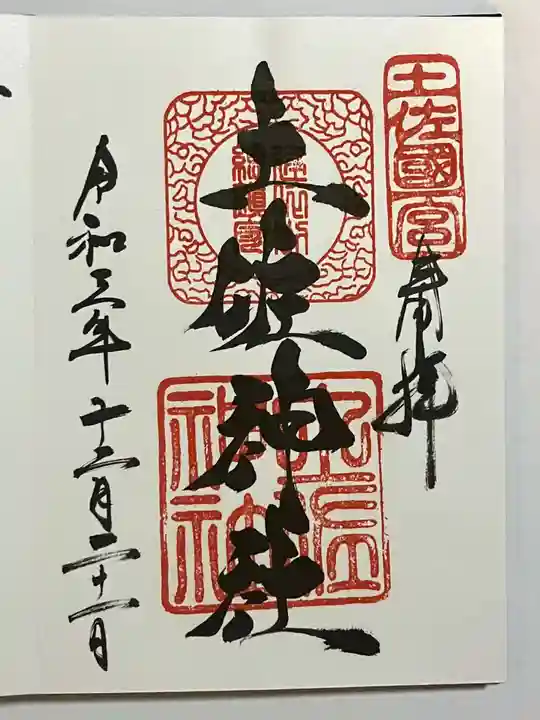 土佐國一宮
奉拝
土佐神社
土佐神社
令和三年十二月二十一日